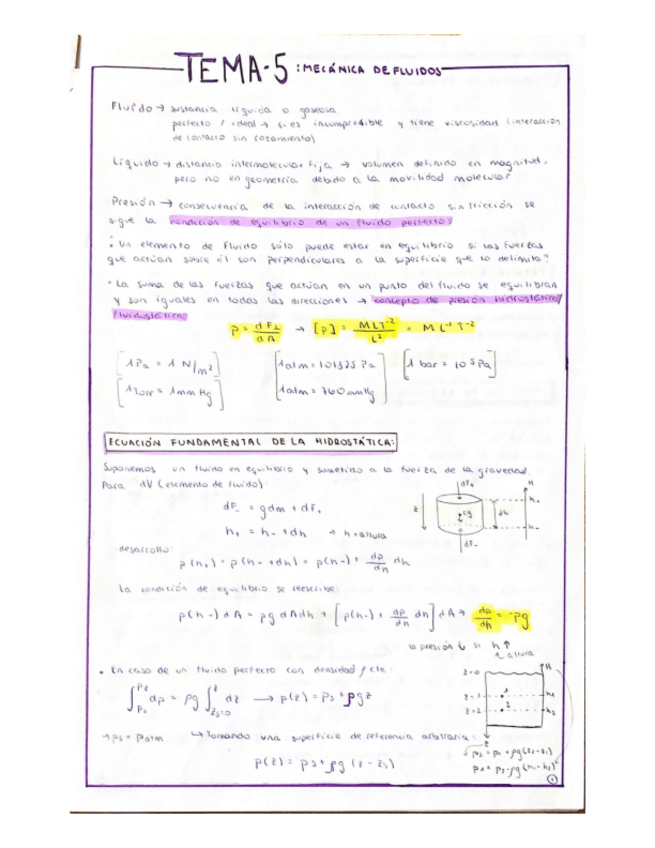 TEMA-5: MECÁNICA DE FLUIDOS
Fluido → sustancia líquida o gaseosa
perfecto / ideal → si es incompresible y tiene viscosidad (interacción
de contacto sin rozamiento)
Líquido → distancia intermolecular fija → volumen definido en magnitud,
pero no en geometría debido a la movilidad molecular
Presión → consecuencia de la interacción de contacto sin fricción se
sigue la condición de equilibrio de un fluido perfecto:
"Un elemento de fluido sólo puede estar en equilibrio si las fuerzas
que actúan sobre él son perpendiculares a la superficie que lo delimita"
· La suma de las fuerzas que actúan en un punto del fluido se equilibran
y son iguales en todas las direcciones → concepto de presión hidrostática/
fluidostática
p = dF⊥/dA → [p] = MLT⁻²/L² = ML⁻¹T⁻²
1Pa = 1 N/m²
1Torr = 1mmHg
1atm = 101325 Pa
1atm = 760 mmHg
1 bar = 10⁵Pa
ECUACIÓN FUNDAMENTAL DE LA HIDROSTÁTICA:
Suponemos un fluido en equilibrio y sometido a la fuerza de la gravedad.
Para dV (elemento de fluido):
dF₋ = gdm + dF₊
h₊ = h₋ + dh → h = altura
z dF₊ cg dF₋ dh H h₊ h₋
desarrollo:
p(h₊) = p(h₋ + dh) = p(h₋) + dp/dh dh
La condición de equilibrio se reescribe:
p(h₋)dA = ρg dAdh + [p(h₋) + dp/dh dh] dA → dp/dh = -ρg
la presión ↓ si h ↑
altura
· En caso de un fluido perfecto con densidad ρ cte:
∫dp = ρg ∫dz → p(z) = ps + ρgz
z=0 z=1 z=2 1 2 H h₁ h₂ z
→ ps = patm ↳ Tomando una superficie de referencia arbitraria:
p₂ = p₁ + ρg(z₂-z₁)
p(z) = ps + ρg (z - zs)
1